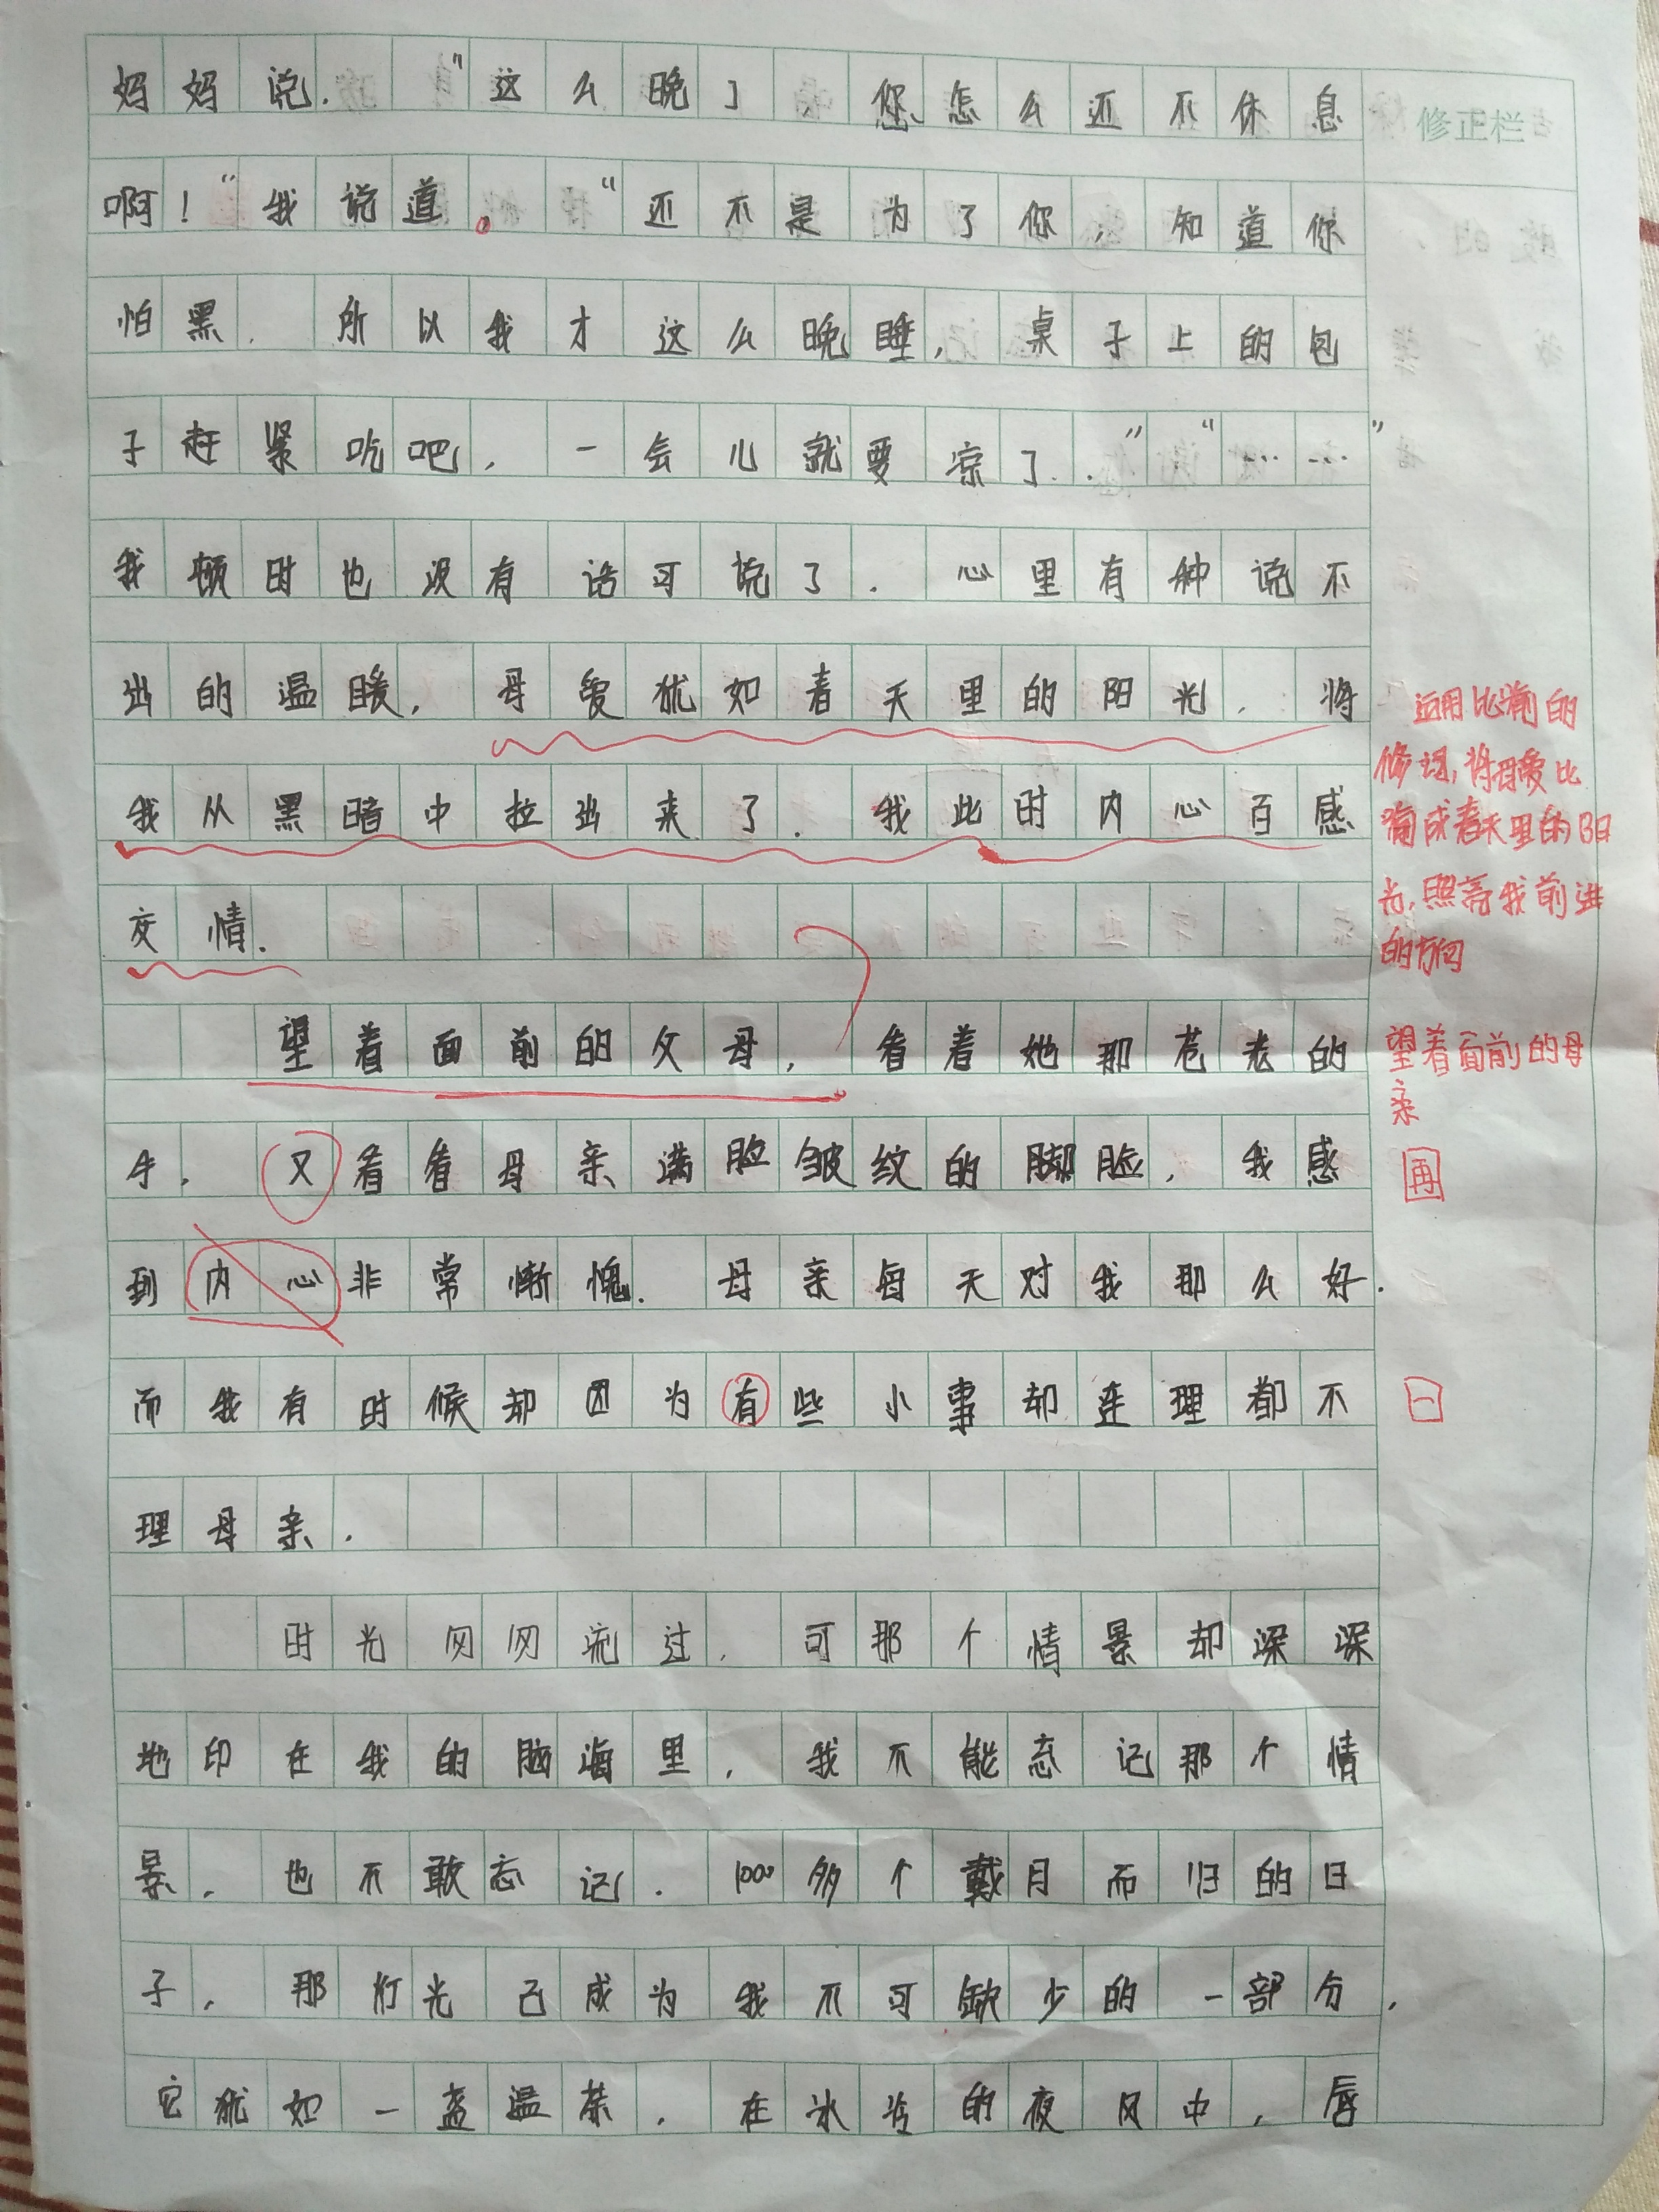 妈妈说. "这么晚了 您怎么还不休息
啊!"我说道。"还不是为了你,知道你
怕黑.所以我才这么晚睡,桌子上的包
子赶紧吃吧,一会儿就要凉了.""……"
我顿时也没有话可说了.心里有种说不
出的温暖,母爱犹如春天里的阳光,将
我从黑暗中拉出来了.我此时内心百感
交情.
望着面前的父母,看着她那苍老的
手,又看看母亲满脸皱纹的脸,我感
到内心非常惭愧.母亲每天对我那么好.
而我有时候却因为有些小事却连理都不
理母亲.
时光匆匆流过,可那个情景却深深
地印在我的脑海里,我不能忘记那个情
景,也不敢忘记.1000多个戴月而归的日
子,那灯光已成为我不可缺少的一部分,
它犹如一盏温茶,在冰冷的夜风中,唇
修正栏
运用比喻的
修辞,将母爱比
喻成春天里的阳
光,照亮我前进
的方向
望着面前的母
亲
再
一